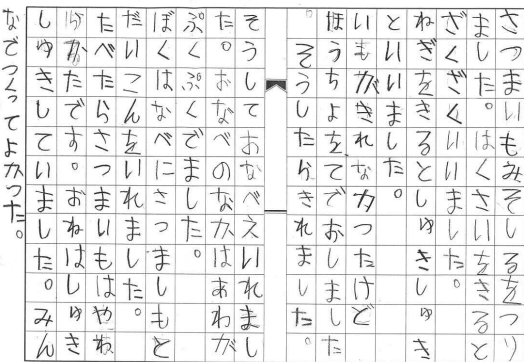 さつまいもみそしるをつくり
ました。はくさいをきると
ざくざくいいました。
ねぎをきるとしゅきしゅき
といいました。
いもがきれなかったけど
ほうちょをてでおしました
。そうしたらきれました。
そうしておなべえいれまし
た。おなべのなかはあわが
ぷくぷくでました。
ぼくはなべにさつましもと
だいこんをいれました。
たべたらさつまいもはやわ
らかたです。おねはしゅき
しゅきしていました。みん
なでつくってよかった。